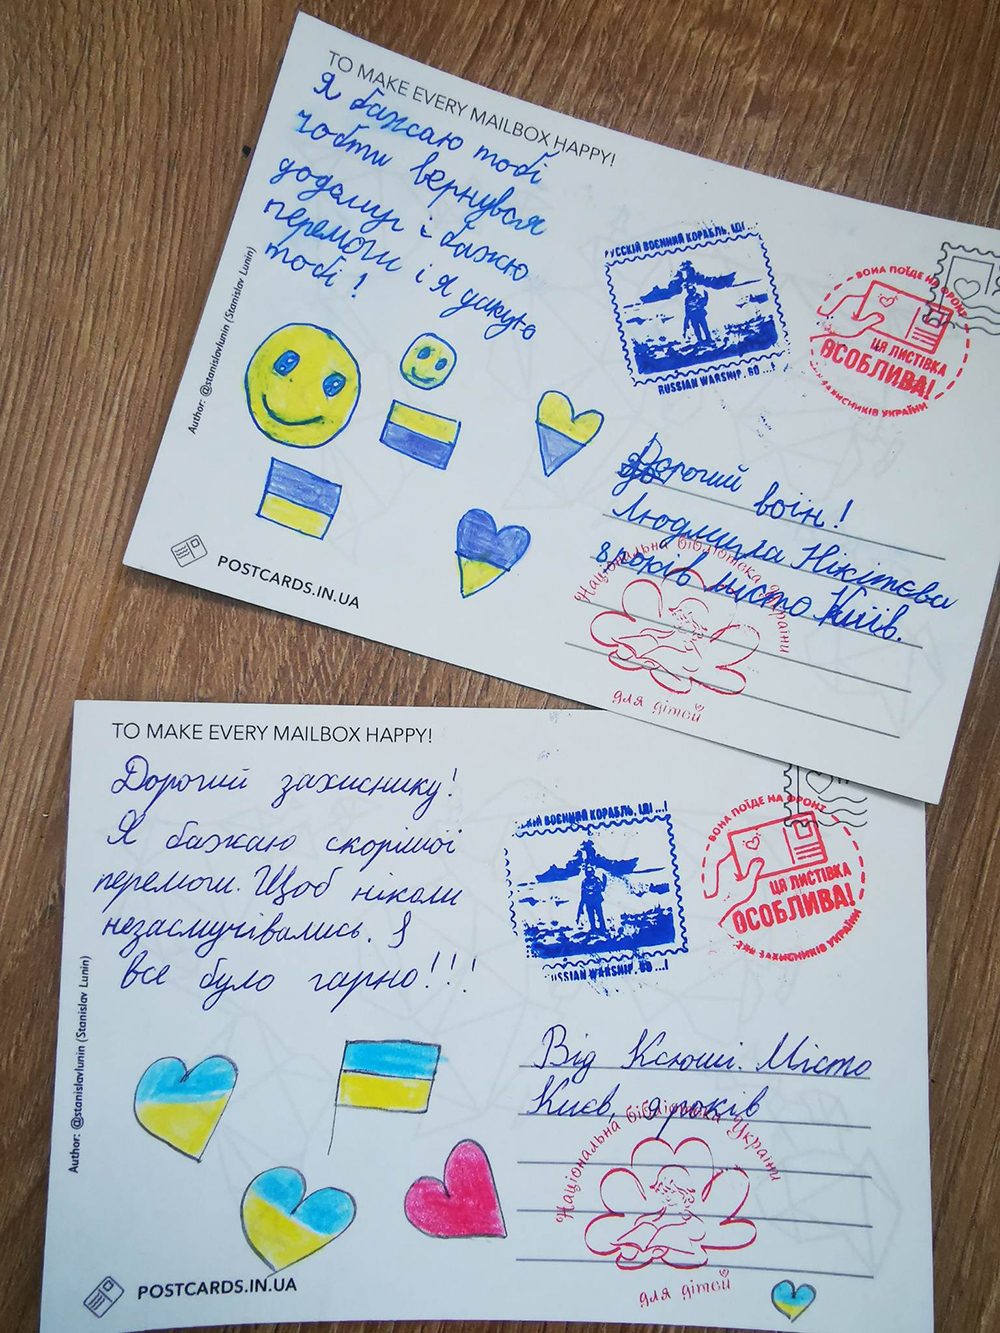 TO MAKE EVERY MAILBOX HAPPY!
Я бажаю тобі
чобти вернувся
додому і бажаю
перемоги і я дякую
тобі!
Author: @stanislavlunin (Stanislav Lunin)
POSTCARDS.IN.UA
РУССКІЙ ВОЄННИЙ КОРАБЛЬ, ІДІ ...
RUSSIAN WARSHIP, GO ...!
ВОНА ПОЇДЕ НА ФРОНТ
ЦЯ ЛИСТІВКА
ОСОБЛИВА!
ДЛЯ ЗАХИСНИКІВ УКРАЇНИ
Дорогий воїн!
Людмила Нікітєва
8 років місто Київ.
Національна бібліотека України
для дітей
TO MAKE EVERY MAILBOX HAPPY!
Дорогий захиснику!
Я бажаю скорішої
перемоги. Щоб ніколи
незасмучівались. І
все було гарно!!!
Author: @stanislavlunin (Stanislav Lunin)
POSTCARDS.IN.UA
ВОЄННИЙ КОРАБЛЬ, ІДІ ...!
RUSSIAN WARSHIP, GO ...!
ВОНА ПОЇДЕ НА ФРОНТ
ЦЯ ЛИСТІВКА
ОСОБЛИВА!
ДЛЯ ЗАХИСНИКІВ УКРАЇНИ
Від Ксюші. Місто
Києв, 9 років
Національна бібліотека України
для дітей